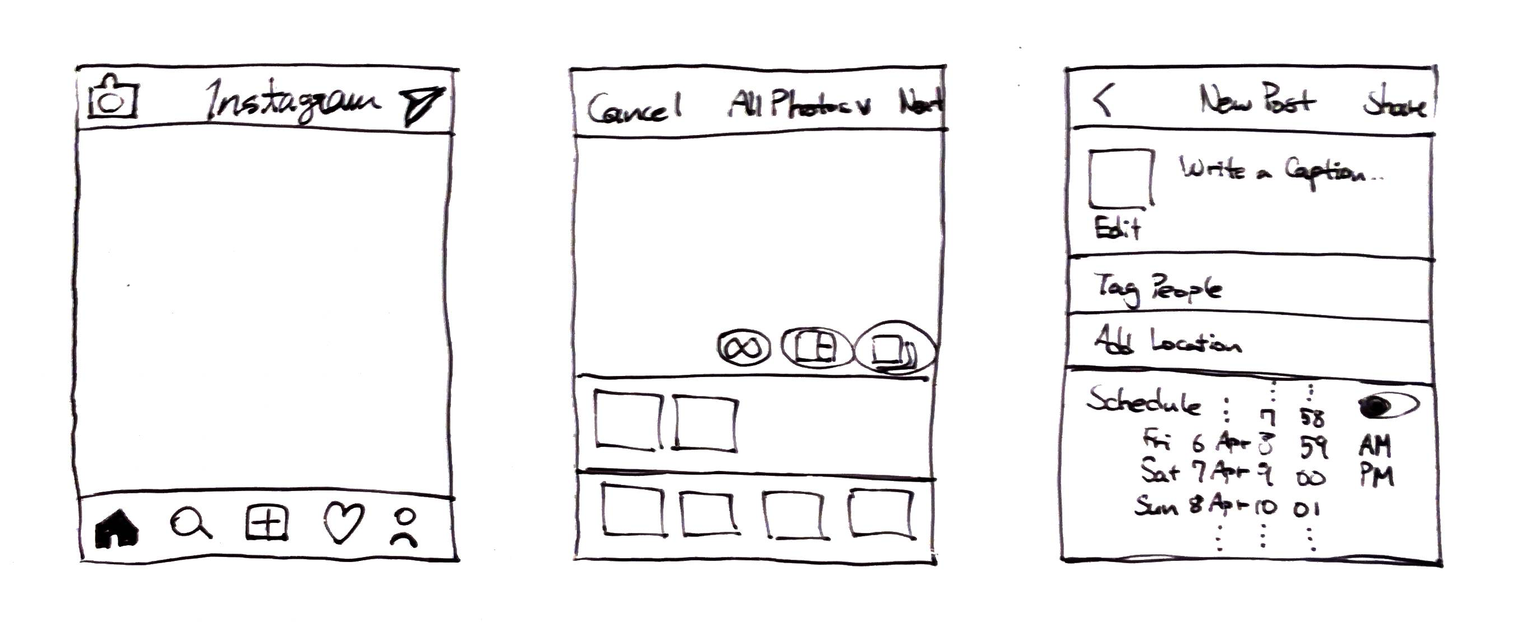 Instagram
Cancel All Photos v Next
New Post Share
Write a Caption..
Edit
Tag People
Add Location
Schedule 7 58
Fri 6 Apr 8 59 AM
Sat 7 Apr 9 00 PM
Sun 8 Apr 10 01